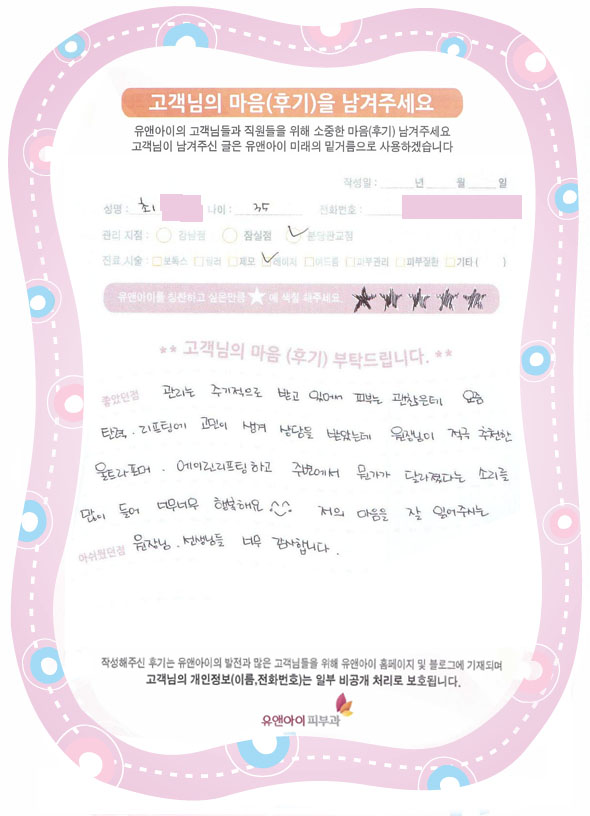 고객님의 마음(후기)을 남겨주세요
유앤아이의 고객님들과 직원들을 위해 소중한 마음(후기) 남겨주세요
고객님이 남겨주신 글은 유앤아이 미래의 밑거름으로 사용하겠습니다
작성일 : 년 월 일
성명 : 최 나이 : 35 전화번호 :
관리 지점 : 강남점 잠실점 분당판교점
진료,시술 : 보톡스 필러 제모 레이저 여드름 피부관리 피부질환 기타( )
유앤아이를 칭찬하고 싶은만큼 ★ 에 색칠 해주세요. ★★★★★
** 고객님의 마음 (후기) 부탁드립니다. **
좋았던점 관리는 주기적으로 받고 있어서 피부는 괜찮은데 요즘
탄력. 리프팅에 고민이 생겨 상담을 받았는데 원장님이 적극 추천한
울트라포머. 에어린리프팅하고 주변에서 뭔가가 달라졌다는 소리를
많이 들어 너무너무 행복해요 저의 마음을 잘 읽어주시는
아쉬웠던점 원장님. 선생님들 너무 감사합니다.
작성해주신 후기는 유앤아이의 발전과 많은 고객님들을 위해 유앤아이 홈페이지 및 블로그에 기재되며
고객님의 개인정보(이름,전화번호)는 일부 비공개 처리로 보호됩니다.
유앤아이피부과